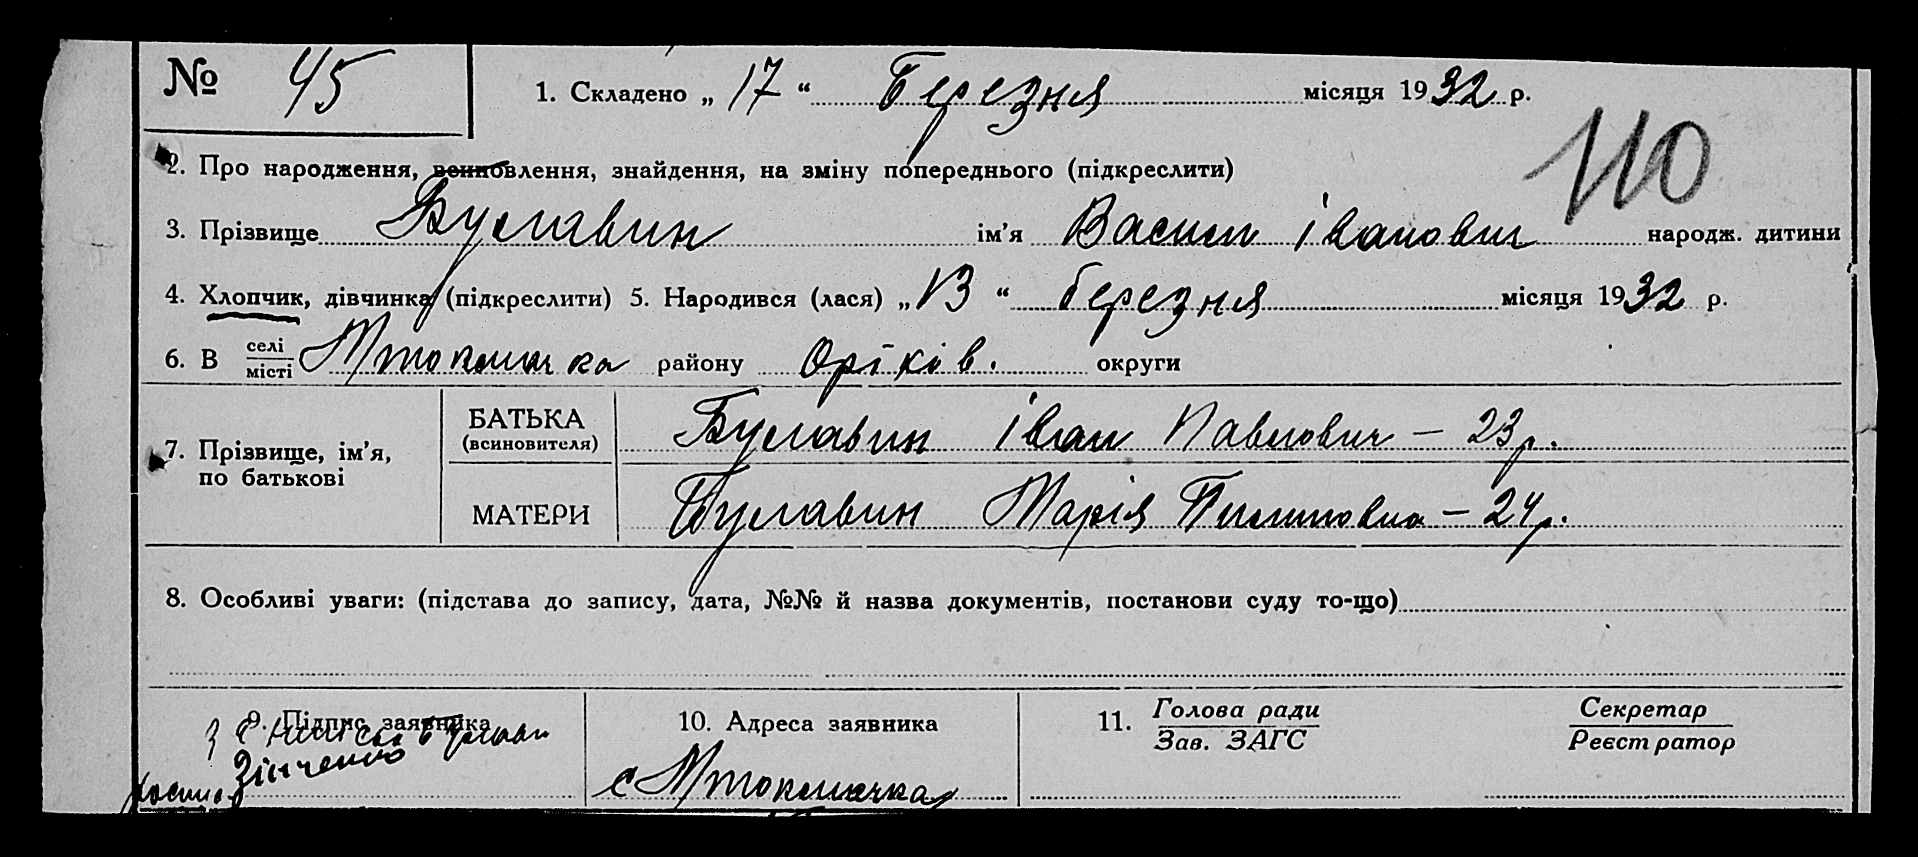 № 45
1. Складено „ 17 “ Березня місяця 1932 р.
110
2. Про народження, всиновлення, знайдення, на зміну попереднього (підкреслити)
3. Прізвище Буславин ім’я Василь Іванович народж. дитини
4. Хлопчик, дівчинка (підкреслити) 5. Народився (лася) „ 13 “ березня місяця 1932 р.
6. В селі місті Мтокмачка району Оріхів. округи
7. Прізвище, ім’я, по батькові
БАТЬКА (всиновителя) Буславин Іван Павлович – 23 р.
МАТЕРИ Буславин Марія Пилиповна – 24 р.
8. Особливі уваги: (підстава до запису, дата, №№ й назва документів, постанови суду то-що)
9. Підпис заявника
Зінченко
10. Адреса заявника
с Мтокмачка
11. Голова ради Зав. ЗАГС
Секретар Реєстратор